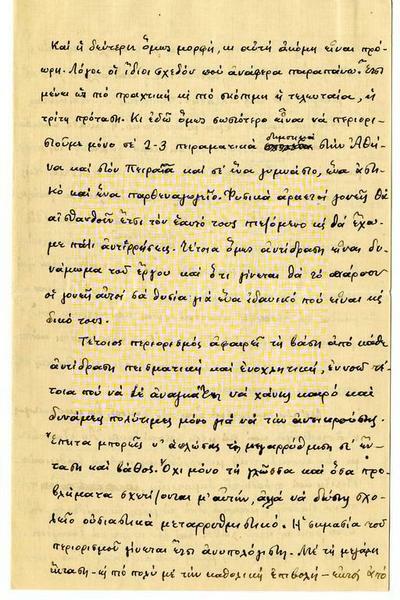 Καὶ ἡ δεύτερη ὅμως μορφή, κι αὐτὴ ἀκόμη εἶναι πρό-
ωρη. Λόγοι οἱ ἴδιοι σχεδὸν ποὺ ἀνάφερα παραπάνω. Ἔτσι
μένει ὡς πιὸ πραχτικὴ κι πιὸ σκόπιμη ἡ τελευταία, ἡ
τρίτη πρόταση. Κι ἐδῶ ὅμως σωστότερο εἶναι νὰ περιορι-
στοῦμε μόνο σὲ 2-3 πειραματικὰ δημοτικὰ στὴν Ἀθή-
να καὶ στὸν Πειραιᾶ καὶ σὲ ἕνα γυμνάσιο, ἕνα ἀστι-
κὸ καὶ ἕνα παρθεναγωγεῖο. Φυσικὰ ἀρκετοὶ γονεῖς θὰ
αἰσθανθοῦν ἔτσι τὸν ἑαυτό τους πιεζόμενο κι θὰ ἔχω-
με πάλι ἀντιρρήσεις. Τέτοια ὅμως ἀντίδραση εἶναι δυ-
νάμωμα τοῦ ἔργου καὶ ὅ,τι γίνεται θὰ τὸ πάρουν
οἱ γονεῖς αὐτοὶ σὰ θυσία γιὰ ἕνα ἰδανικὸ ποὺ εἶναι κι
δικό τους.
Τέτοιος περιορισμὸς ἀφαιρεῖ τὴ βάση ἀπὸ κάθε
ἀντίδραση πεισματικὴ καὶ ἐνοχλητική, ἐννοῶ τέ-
τοια ποὺ νὰ σὲ ἀναγκάζῃ νὰ χάνῃς καιρὸ καὶ
δυνάμεις πολύτιμες μόνο γιὰ νὰ τὴν ἀντικρούσῃς.
Ἔπειτα μπορεῖς ν' ἁπλώσῃς τὴ μεταρρύθμιση σ' ἔν-
ταση καὶ βάθος. Ὄχι μόνο τὴ γλῶσσα καὶ ὅσα προ-
βλήματα σχετίζονται μ' αὐτήν, ἀλλὰ νὰ δώσῃς σχο-
λεῖο οὐσιαστικὰ μεταρρυθμιστικό. Ἡ σημασία τοῦ
περιορισμοῦ γίνεται ἔτσι ἀνυπολόγιστη. Μὲ τὴ μεγάλη
ἔκταση - κι πιὸ πολὺ μὲ τὴν καθολικὴ ἐπιβολὴ - ἐκτὸς ἀπὸ